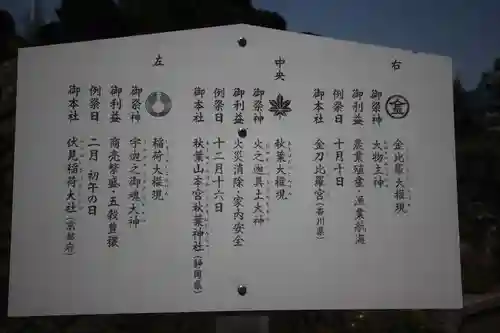 右
金
金比羅大権現
御祭神 大物主神
御利益 農業殖産・漁業航海
例祭日 十月十日
御本社 金刀比羅宮(香川県)
中央
秋葉大権現
御祭神 火之迦具土大神
御利益 火災消除・家内安全
例祭日 十二月十六日
御本社 秋葉山本宮秋葉神社(静岡県)
左
稲荷大権現
御祭神 宇迦之御魂大神
御利益 商売繁盛・五穀豊穣
例祭日 二月 初午の日
御本社 伏見稲荷大社(京都府)